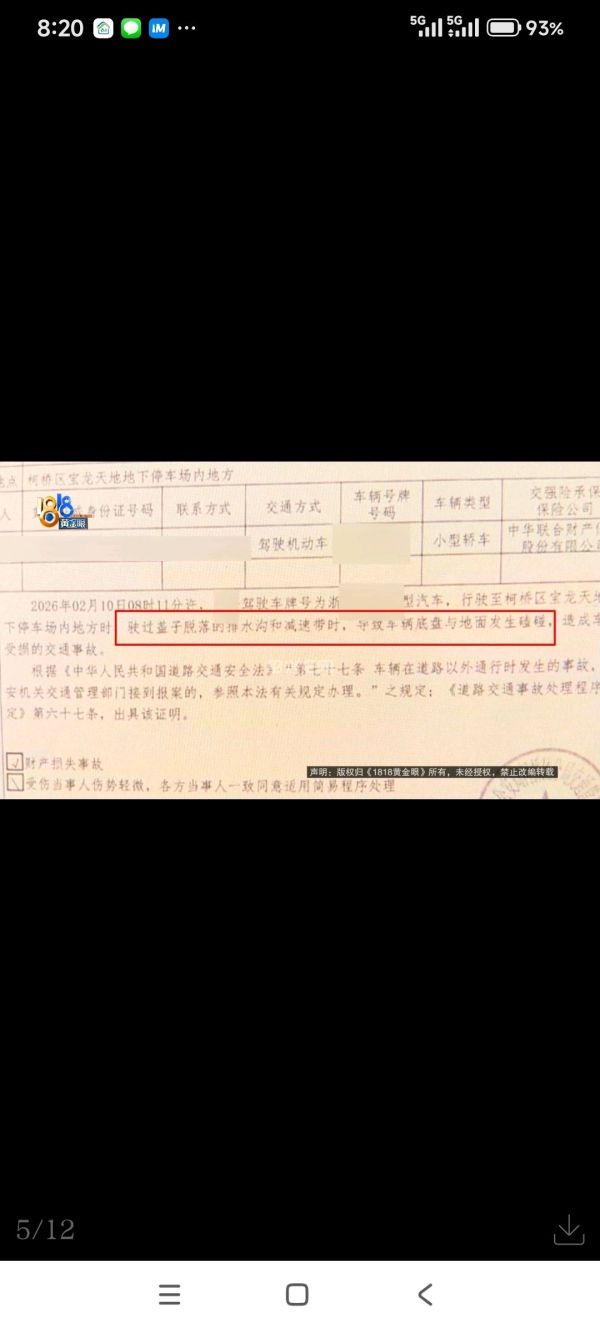 8:20
iM
5G
5G
93%
地点 柯桥区宝龙天地地下停车场内地方
人
身份证号码
联系方式
交通方式
车辆号牌
号码
车辆类型
交强险承保
保险公司
1818
黄金眼
驾驶机动车
小型轿车
中华联合财产保
股份有限公司
2026年02月10日08时11分许，
驾驶车牌号为浙
型汽车，行驶至柯桥区宝龙天地
下停车场内地方时，驶过盖子脱落的排水沟和减速带时，导致车辆底盘与地面发生磕碰，造成车
受损的交通事故。
根据《中华人民共和国道路交通安全法》“第七十七条 车辆在道路以外通行时发生的事故，
安机关交通管理部门接到报案的，参照本法有关规定办理。”之规定；《道路交通事故处理程序
定》第六十七条，出具该证明。
财产损失事故
声明：版权归《1818黄金眼》所有，未经授权，禁止改编转载
受伤当事人伤势轻微，各方当事人一致同意适用简易程序处理
5/12